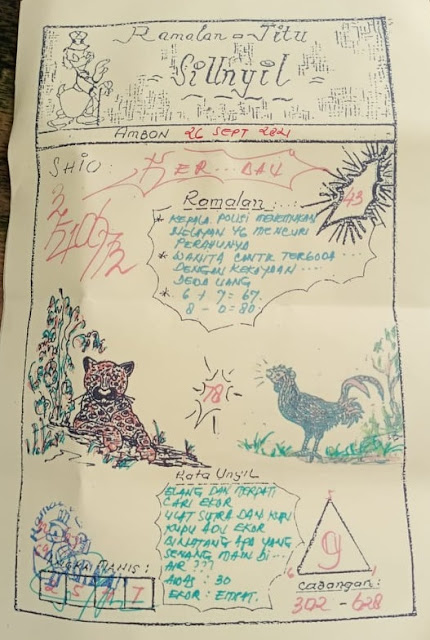 Ramalan - Jitu
Sillnyil
AMBON 26 SEPT 2021
SHIO:
ER... DAU
43
Ramalan:...
* KEPALA POLISI MENEMUKAN
NELAYAN YG MENCURI
PERAHUNYA
* WANITA CANTIK TERGODA....
DENGAN KEKAYAAN....
DEDA UANG
* 6 + 7 = 67.
8 - 0 = 80.
78
Kata Unyil
ELANG DAN MERPATI
CARI EKOR
ULAT SUTRA DAN KUPU
KUPU ADU EKOR
BINATANG APA YANG
SENANG MAIN DI...
AIR ???
AWAS : 30
EKOR : EMPAT.
MANIS:
9
6
Cabangan:
302 - 628